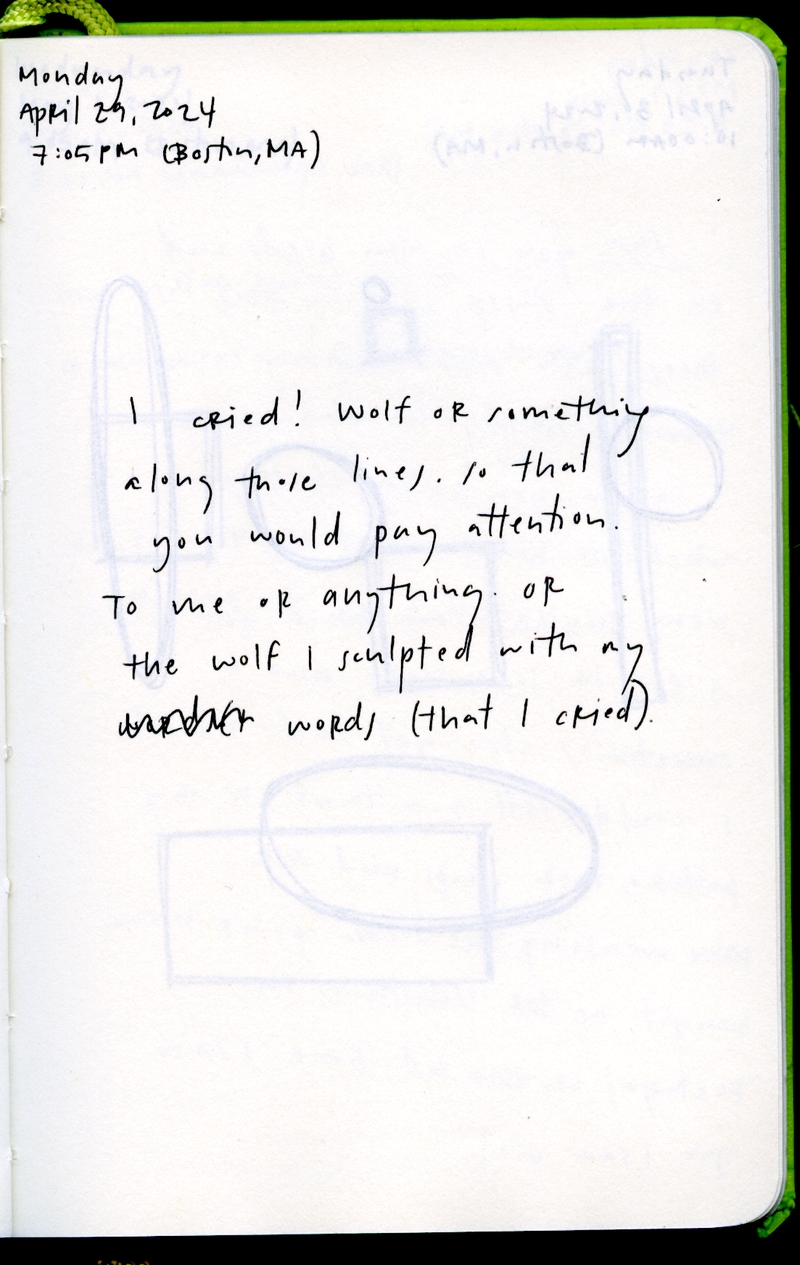 Monday
April 29, 2024
7:05 PM (Boston, MA)
I cried! Wolf or something
along those lines. so that
you would pay attention.
To me or anything. or
the wolf I sculpted with my
words (that I cried).